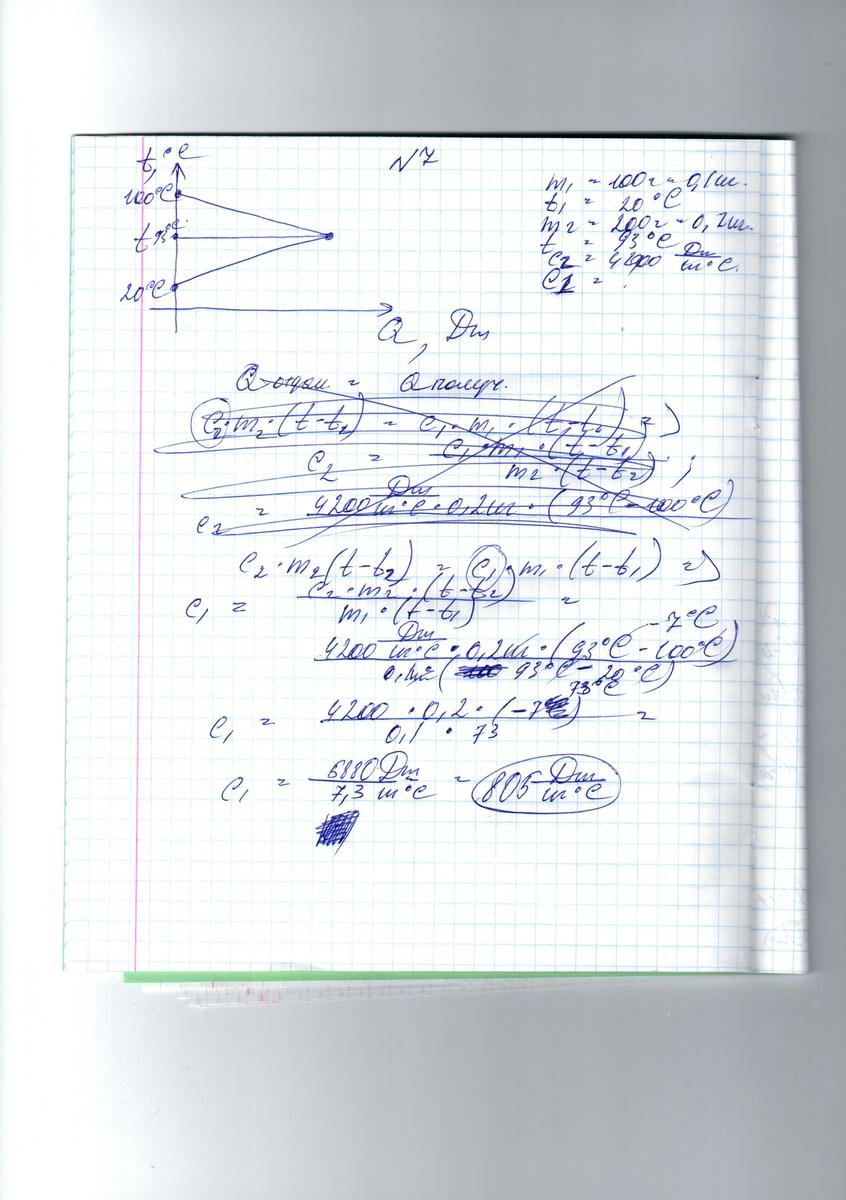 t, °C
N 7
100°C
t 93°C
20°C
Q, Дж
m₁ = 100г = 0,1кг.
t₁ = 20°C
m₂ = 200г = 0,2кг.
t = 93°C
c₂ = 4200 Дж/кг°C.
C1 =
Q отдан = Q получ.
C₂·m₂·(t-t₂) = c₁·m₁·(t-t₁) =>
c₂ = c₁·m₁·(t-t₁) / m₂·(t-t₂) ;
c₂ = 4200 Дж/кг°C·0,2кг·(93°C-100°C)
C₂·m₂(t-t₂) = C₁·m₁·(t-t₁) =>
c₁ = c₂·m₂·(t-t₂) / m₁·(t-t₁) =
-7°C
4200 Дж/кг°C·0,2кг·(93°C-100°C)
0,1кг(93°C-20°C)
73°C
c₁ = 4200·0,2·(-7) / 0,1·73 =
c₁ = 5880 Дж / 7,3 кг°C = 805 Дж/кг°C